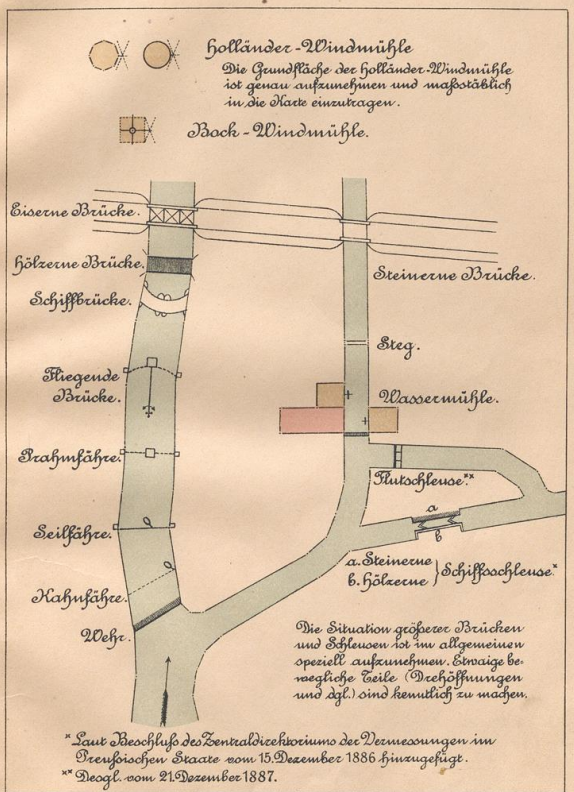 Holländer-Windmühle
Die Grundfläche der Holländer-Windmühle
ist genau aufzunehmen und maßstäblich
in die Karte einzutragen.
Bock-Windmühle.
Eiserne Brücke.
Hölzerne Brücke.
Schiffbrücke.
Fliegende
Brücke.
Prahmfähre.
Seilfähre.
Kahnfähre.
Wehr.
Steinerne Brücke.
Steg.
Wassermühle.
Flutschleuse.**
a
b
a. Steinerne
b. Hölzerne } Schiffsschleuse*
Die Situation größerer Brücken
und Schleusen ist im allgemeinen
speziell aufzunehmen. Etwaige be-
wegliche Teile (Drehöffnungen
und dgl.) sind kenntlich zu machen.
* Laut Beschluß des Zentraldirektoriums der Vermessungen im
Preußischen Staate vom 15. Dezember 1886 hinzugefügt.
** Desgl. vom 21. Dezember 1887.